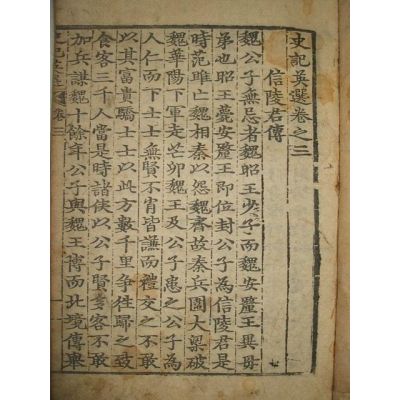 史記英選卷之三
信陵君傳
魏公子無忌者魏昭王少子而魏安釐王異母
弟也昭王薨安釐王即位封公子爲信陵君是
時范雎亡魏相秦以怨魏齊故秦兵圍大梁破
魏華陽下軍走芒卯魏王及公子患之公子爲
人仁而下士士無賢不肖皆謙而禮交之不敢
以其富貴驕士士以此方數千里爭往歸之致
食客三千人當是時諸侯以公子賢多客不敢
加兵謀魏十餘年公子與魏王博而北境傳舉
卷三